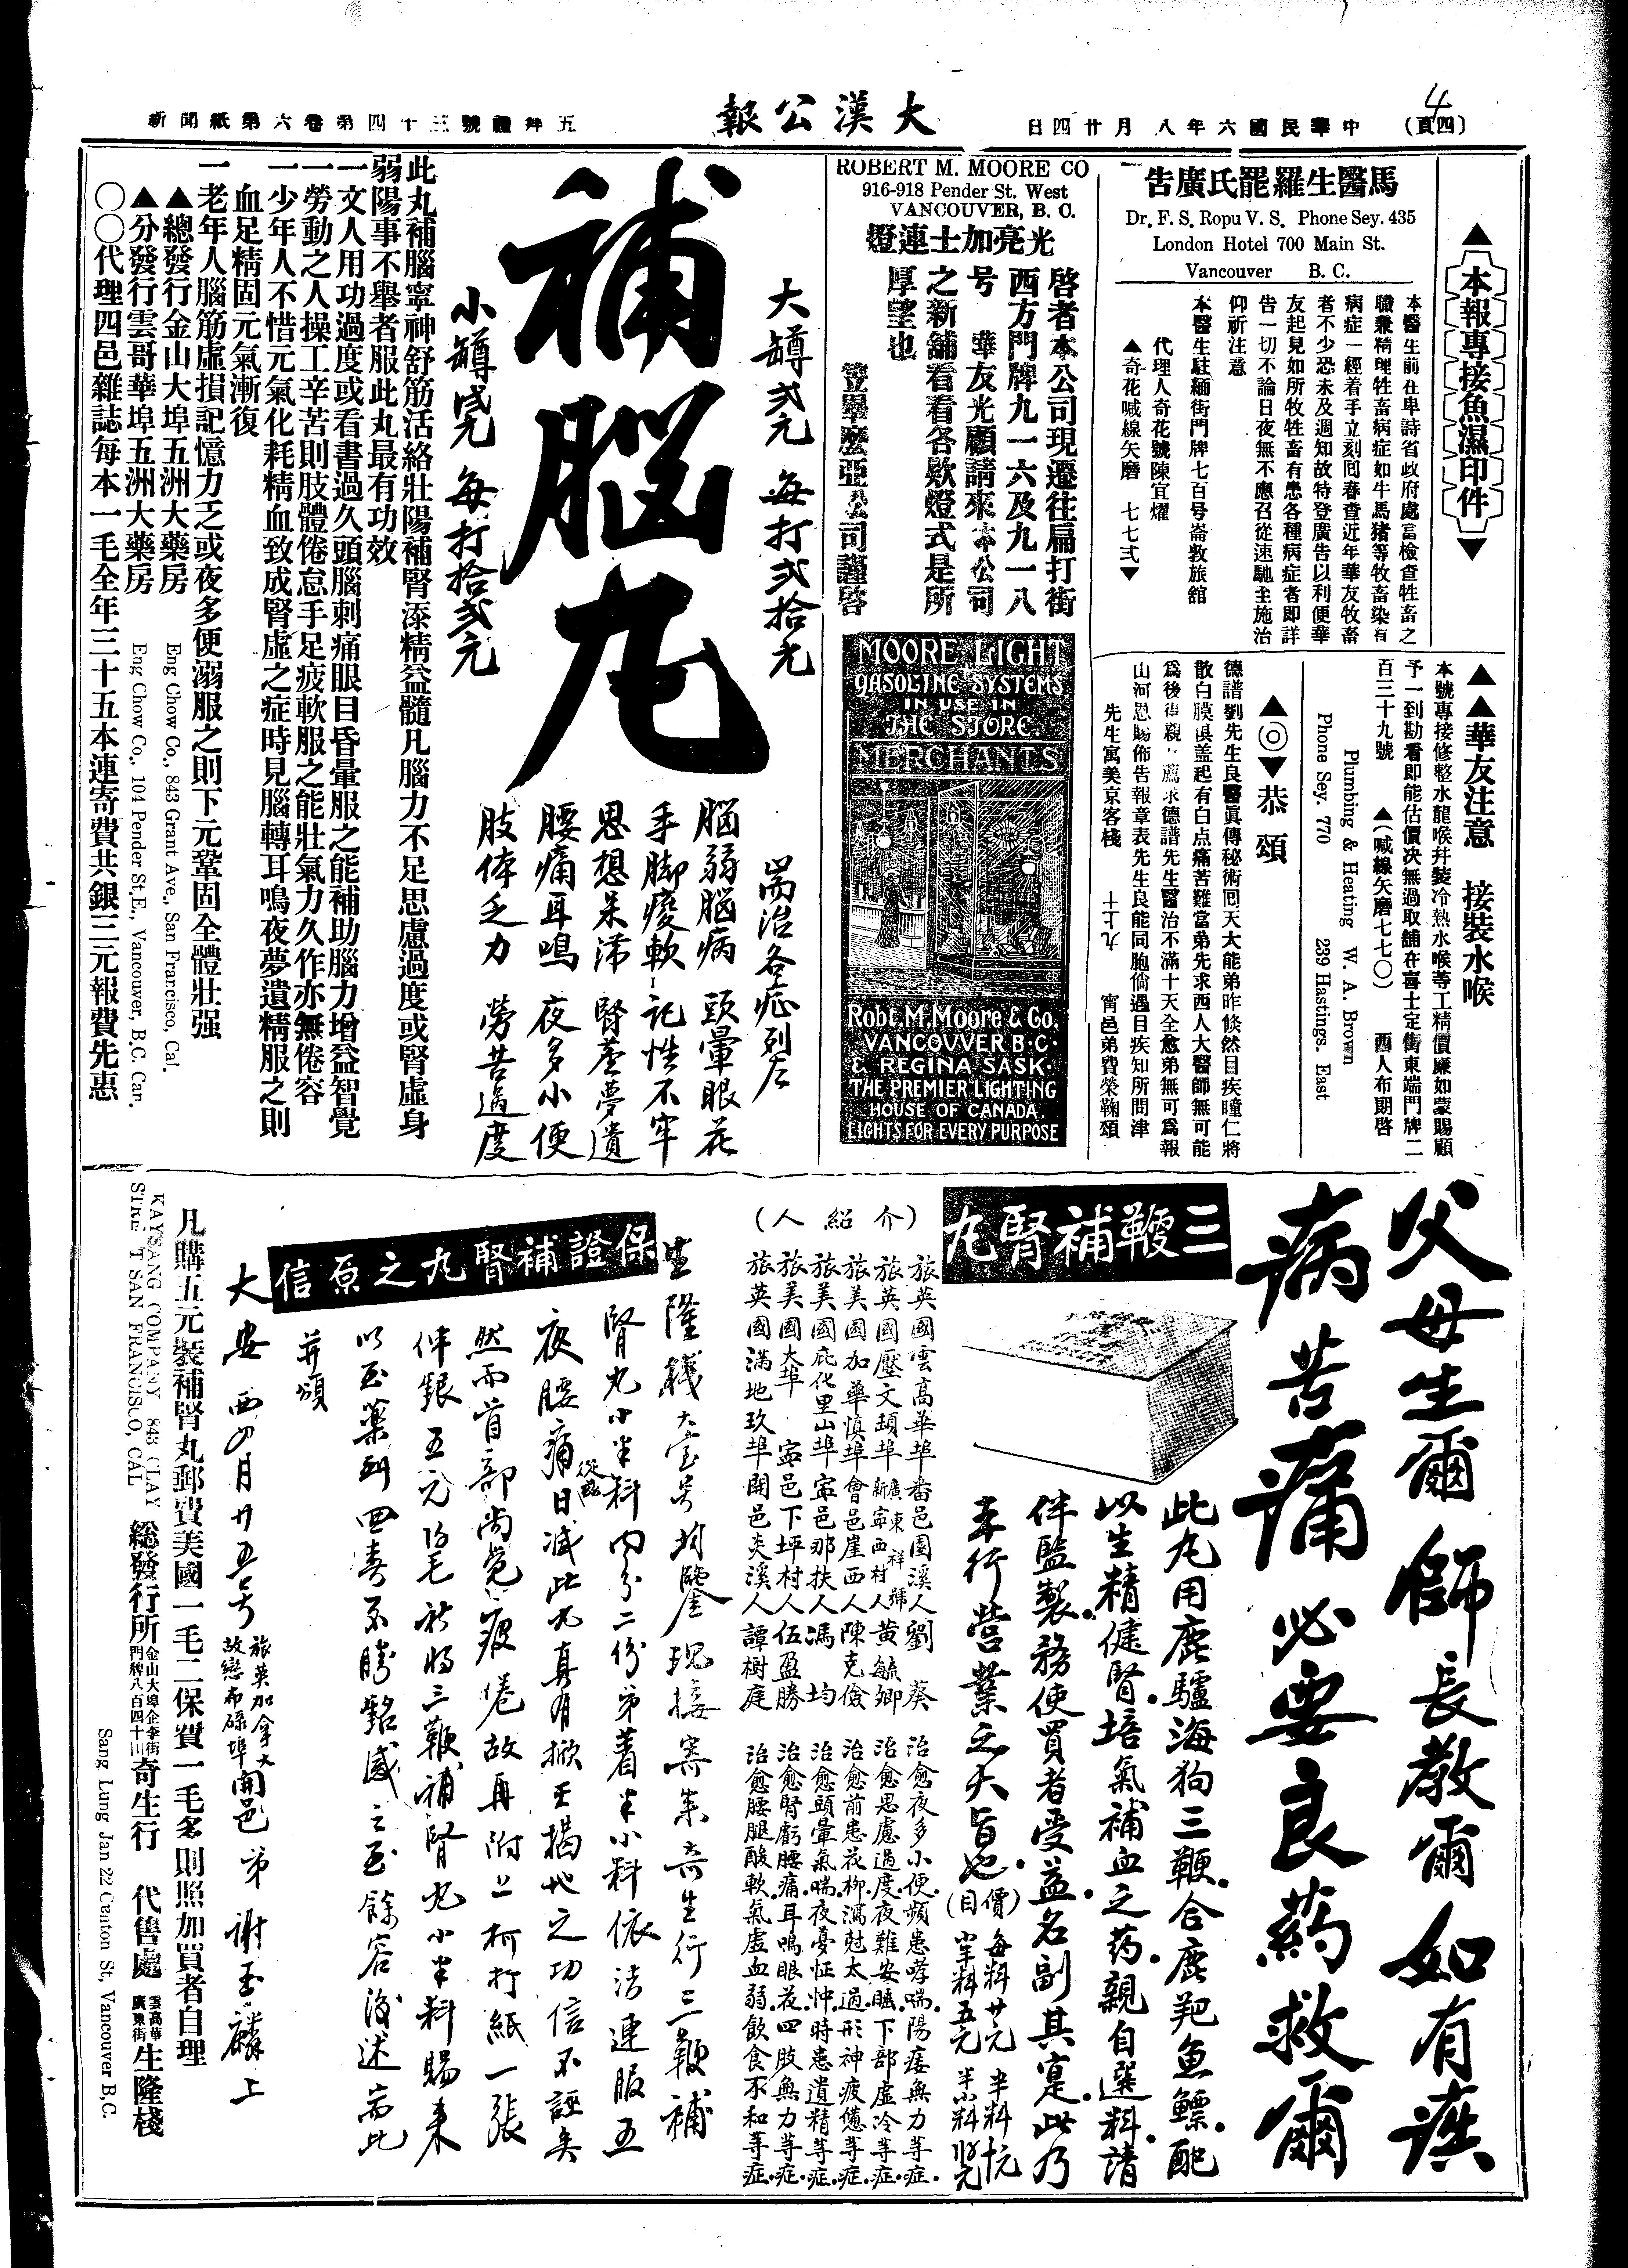 4
(四頁)
中華民國六年八月廿四日
大漢公報
五拜禮號三十四第卷六第紙聞新
▲本報專接魚濕印件▼
馬醫生羅罷氏廣告
Dr. F. S. Ropu V. S. Phone Sey. 435
London Hotel 700 Main St.
Vancouver B. C.
本醫生前在卑詩省政府處當檢查牲畜之
職兼精理牲畜病症如牛馬猪等牧畜染有
病症一經着手立刻囘春查近年華友牧畜
者不少恐未及週知故特登廣告以利便華
友起見如所牧牲畜有患各種病症者即詳
告一切不論日夜無不應召從速馳全施治
仰祈注意
本醫生駐緬街門牌七百号崙敦旅舘
代理人奇花號陳宜燿
▲奇花喊線矢磨 七七弍▼
▲▲華友注意 接裝水喉
本號專接修整水龍喉幷裝冷熱水喉等工精價廉如蒙賜顧
予一到勘看即能估價决無過取舖在喜士定街東端門牌二
百三十九號 ▲(喊線矢磨七七〇) 西人布期啓
Plumbing & Heating W. A. Brown
Phone Sey. 770 239 Hastings. East
▲◎▼恭頌
德譜劉先生良醫眞傳秘術囘天大能弟昨倐然目疾瞳仁將
散白膜俱盖起有白点痛苦難當弟先求西人大醫師無可能
爲後得親薦求德譜先生醫治不滿十天全愈弟無可爲報
山河恩賜佈告報章表先生良能同胞倘遇目疾知所問津
先生寓美京客棧 十上九 甯邑弟費榮鞠頌
ROBERT M. MOORE CO
916-918 Pender St. West
VANCOUVER, B. C.
光亮加士連燈
啓者本公司現遷往扁打街
西方門牌九一六及九一八
号 華友光顧請來本公司
之新舖看看各欵燈式是所
厚望也
笠畢麽亞公司謹啓
MOORE LIGHT
GASOLINE SYSTEMS
IN USE IN
THE STORE.
MERCHANTS
Robt. M. Moore & Co.
VANCOUVER B.C.
& REGINA SASK.
THE PREMIER LIGHTING
HOUSE OF CANADA.
LIGHTS FOR EVERY PURPOSE
大罇弍元 每打弍拾元
補腦丸
小罇元 每打拾弍元
耑治各症列左
腦弱腦病 頭暈眼花
手脚痠軟 記性不牢
思想呆滯 腎虛夢遺
腰痛耳鳴 夜多小便
肢体乏力 勞苦過度
此丸補腦寧神舒筋活絡壯陽補腎添精益髓凡腦力不足思慮過度或腎虛身
弱陽事不舉者服此丸最有功效
一文人用功過度或看書過久頭腦刺痛眼目昏暈服之能補助腦力增益智覺
一勞動之人操工辛苦則肢體倦怠手足疲軟服之能壯氣力久作亦無倦容
一少年人不惜元氣化耗精血致成腎虛之症時見腦轉耳鳴夜夢遺精服之則
血足精固元氣漸復
一老年人腦筋虛損記憶力乏或夜多便溺服之則下元鞏固全體壯强
▲總發行金山大埠五洲大藥房
Eng Chow Co., 843 Grant Ave., San Francisco, Cal.
▲分發行雲哥華埠五洲大藥房
Eng Chow Co., 104 Pender St. E., Vancouver, B.C. Can.
〇〇代理四邑雜誌每本一毛全年三十五本連寄費共銀三元報費先惠
父母生爾 師長教爾 如有疾
病苦痛 必要良藥救爾
三鞭補腎丸
此丸用鹿驢海狗三鞭合鹿羓魚鰾配
以生精健腎培氣補血之药親自選料請
伴監製務使買者受益名副其寔此乃
本行營業之大旨也
(價目)每料廿元 半料
小半料五元 半小料
(介紹人)
旅英國雲高華埠番邑園溪人劉葵 治愈夜多小便頻患哮喘陽痿無力等症
旅英國壓文頓埠新寧西村人黃毓卿 治愈思慮過度夜難安睡下部虛冷等症
廣東祥號
旅美國加華慎埠會邑崖西人陳克儉 治愈前患花柳瀉尅太過形神疲憊等症
旅美國庇化里山埠寧邑那扶人馮均 治愈頭暈氣喘夜憂怔忡時患遺精等症
旅美國大埠 寧邑下坪村人伍盈勝 治愈腎虧腰痛耳鳴眼花四肢無力等症
旅英國滿地玖埠開邑夾溪人譚樹庭 治愈腰腿酸軟氣虛血弱飲食不和等症
保證補腎丸之原信
生隆棧大宝号均鑒現接寄來奇生行三鞭補
腎丸小半料內分二份弟着半小料依法連服五
夜腰痛從此日減此丸真有掀天揭地之功信不誣矣
然而首部尚覺疲倦故再附上柯打紙一張
伴銀五元 毛祈將三鞭補腎丸小半料賜來
以至藥到回春不勝銘感之至餘容後述耑此
并頌
大安 西四月廿五號
旅英加拿大
故戀布碌埠開邑弟 謝玉麟上
凡購五元裝補腎丸郵費美國一毛二保費一毛多則照加買者自理
KAYSANG COMPANY 843 CLAY
STREET SAN FRANCISCO, CAL
総發行所金山大埠企李街門牌八百四十川奇生行 代售處雲高華廣東街生隆棧
Sang Lung Jan 22 Canton St, Vancouver B.C.